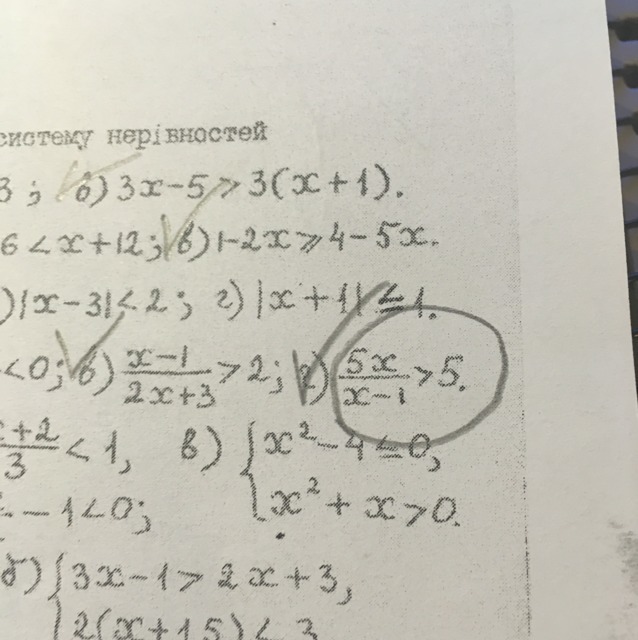 систему нерівностей
3; б) 3x-5 > 3(x+1).
6 < x+12; в) 1-2x ⩾ 4-5x.
) |x-3| < 2; г) |x+1| ≤ 1.
< 0; в) \frac{x-1}{2x+3} > 2; г) \frac{5x}{x-1} > 5.
\frac{x+2}{3} < 1, в) { x²-4 ≤ 0,
-1 < 0; x²+x > 0.
б) { 3x-1 > 2x+3,
2(x+15) < 3